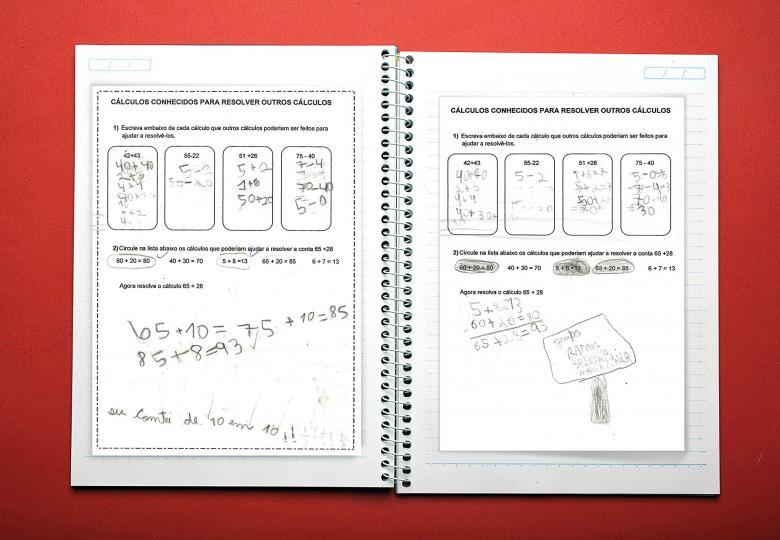 CÁLCULOS CONHECIDOS PARA RESOLVER OUTROS CÁLCULOS
1) Escreva embaixo de cada cálculo que outros cálculos poderiam ser feitos para
ajudar a resolvê-los.
42+43 55-22 51 +26 75 - 40
40+40 5-2 5+2 7-4
2+3 55-20 1+6 70-40
4+4 50+20 5-0
2) Circule na lista abaixo os cálculos que poderiam ajudar a resolver a conta 65 +28
60 + 20 = 80 40 + 30 = 70 5 + 8 =13 65 + 20 = 85 6 + 7 = 13
Agora resolva o cálculo 65 + 28
65+10= 75 +10=85
85+8=93
eu contei de 10 em 10
CÁLCULOS CONHECIDOS PARA RESOLVER OUTROS CÁLCULOS
1) Escreva embaixo de cada cálculo que outros cálculos poderiam ser feitos para
ajudar a resolvê-los.
42+43 55-22 51 +26 75 - 40
40+40 5-2 1+6=7 5-0=5
2+3 5+2=7 7-4=3
4+4 50+20 70-40
=70 =30
2) Circule na lista abaixo os cálculos que poderiam ajudar a resolver a conta 65 +28
60 + 20 = 80 40 + 30 = 70 5 + 8 =13 65 + 20 = 85 6 + 7 = 13
Agora resolva o cálculo 65 + 28
5+8=13
60+20=80
65+28=93
RAFAEL